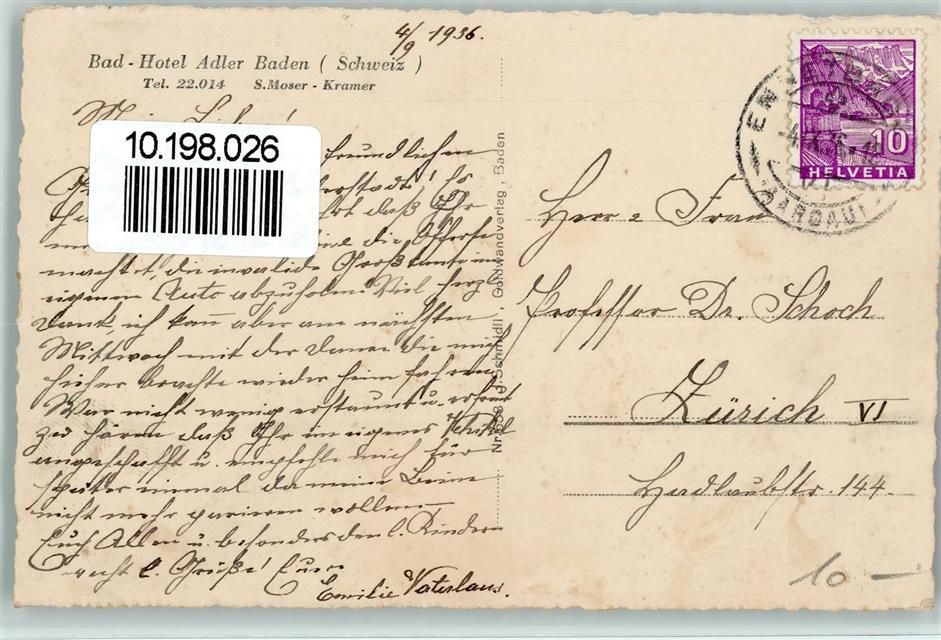 4/9 1936.
Bad - Hotel Adler Baden ( Schweiz )
Tel. 22.014 S. Moser - Kramer
10.198.026
freundlichen
Ihr
die
macht, die invalide Großtante im
eigenen Auto abzuholen. Viel herzl.
Dank, ich kañ aber am nächsten
Mittwoch mit der Dame die mich
hieher brachte wieder heim fahren.
War nicht wenig erstaunt u. erfreut
zu hören daß Ihr ein eigenes Vehikel
angeschafft u. empfehle mich für
später einmal da meine Beine
nicht mehr parieren wollen.
Euch Allen u. besonders den l. Kindern
recht l. Grüße! Eure
Emilie Vaterlaus.
J. Schmidli, Goldwandverlag, Baden
HELVETIA
10
ENNETBADEN
(AARGAU)
Herr u Frau
Professor Dr. Schoch
Zürich VI
Hadlaubstr. 144.
10 —